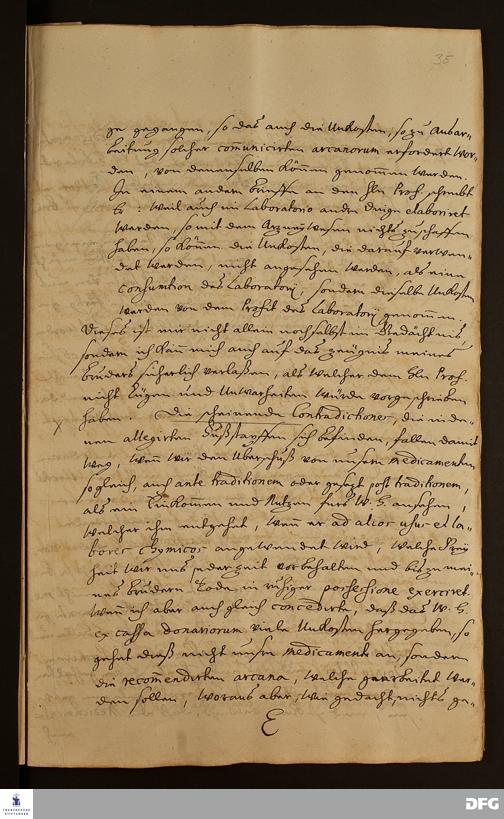 35
ge gegangen, so das auch die Unkosten, so zu Ausar-
beitung solcher comunicirten arcanorum erfordert wor-
den, von denenselben können genommen werden.
In einem andern brieffe an den Hln Prof. schreibt
Er: weil auch im Laboratorio andre Dinge elaboriret
werden, so mit dem Arzney wesen nichts zu schaffen
haben, so können die Unkosten, die darauf verwen-
det werden, nicht angesehen werden, als eine
Consumtion des Laboratorij, sondern dieselbe Unkosten
werden von dem Profit des Laboratorij genommen.
Dieses ist mir nicht allein noch selbst im Gedächtnis,
sondern ich kan mich auch auf das zeugnis meines
bruders sicherlich verlaßen, als welcher dem Hln Prof.
nicht Lügen und Unwarheiten würde vorgeschrieben
haben. Die scheinende Contradictiones, die in de-
nen allegirten Fußstapffen sich befinden, fallen damit
weg, wenn wir den Überschuß von unsern Medicamenten,
so gleich, auch ante traditionem oder gesezt post traditionem,
als ein Einkommen und Nutzen fürs W. H. ansehen,
welcher ihm entgehet, wenn er ad alios usus et la-
bores chymicos angewendet wird, welche Frey
heit wir uns jederzeit vorbehalten und bey mei-
nes brudern Tode in ruhiger possessione exerciret.
Wenn ich aber auch gleich concedirte, daß das W. H.
ex cassa donariorum viele Unkosten hergegeben, so
gehet dieß nicht unsre Medicamente an, sondern
die recommendirten arcana, welche gearbeitet wer-
den sollen, woraus aber, wie gedacht, nichts ge-
E
DFG